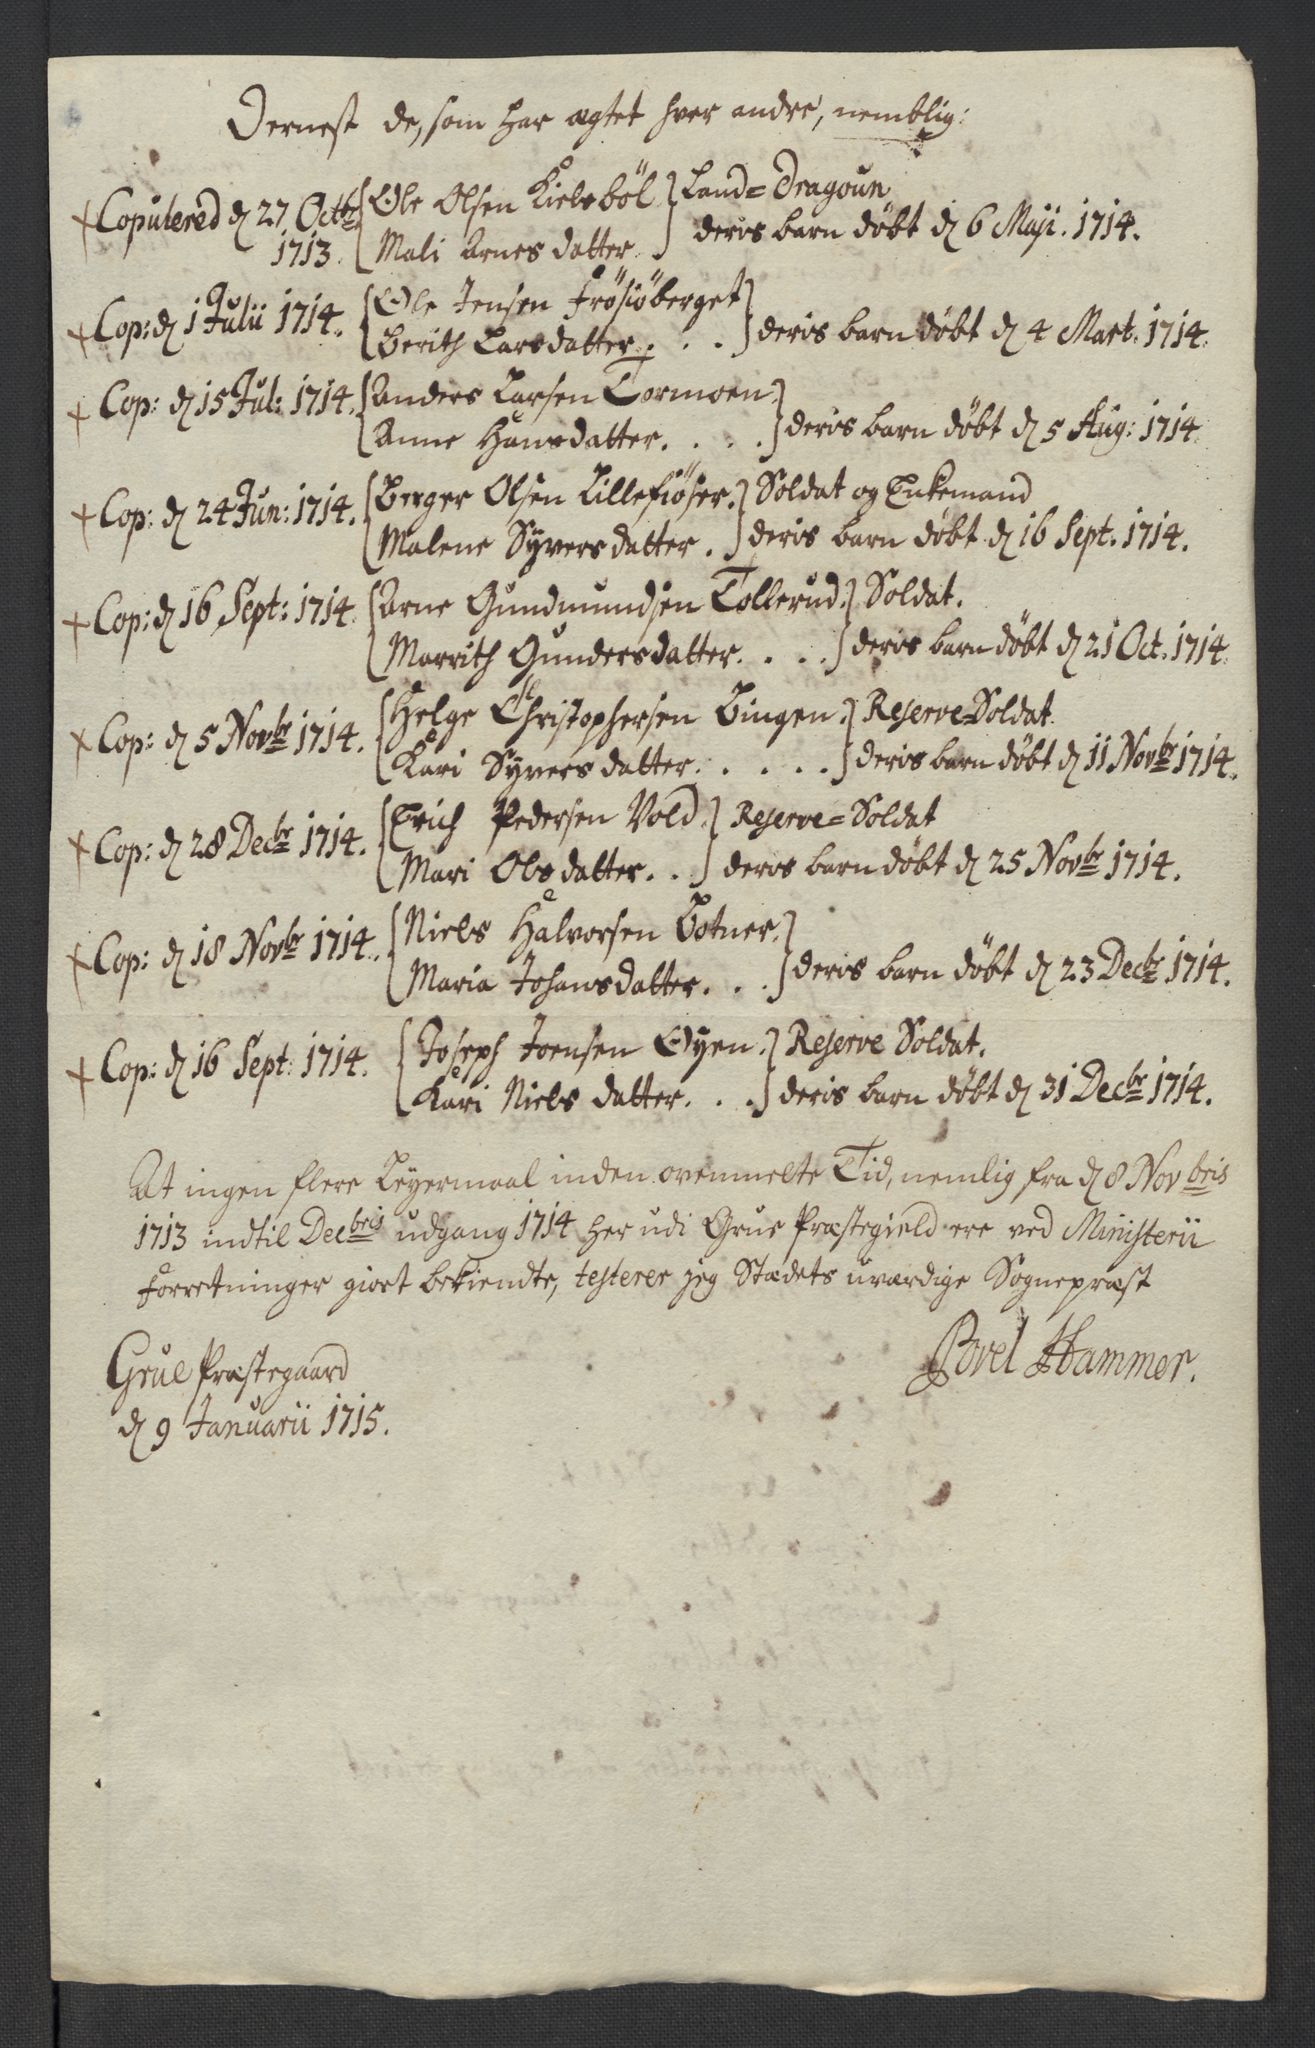 Dernest de, som har ægtet hver andre, nemblig:
+ Copulered d 27 Octbr 1713. { Ole Olsen Kielsböl } Land=Dragoun
Mali Arnes datter } deris barn döbt d 6 Maji. 1714.
+ Cop: d 1 Julii 1714. { Ole Jensen Frösiöberget
Berith Larsdatter . . . } deris barn döbt d 4 Mart. 1714.
+ Cop: d 15 Jul: 1714. { Anders Larsen Tormoen.
Anne Hansdatter. . . . } deris barn döbt d 5 Aug: 1714
+ Cop: d 24 Jun: 1714. { Berger Olsen Lillefiöser. } Soldat og Enkemand
Malene Syvers datter . } deris barn döbt d 16 Sept. 1714.
+ Cop: d 16 Sept: 1714. { Arne Gundmundsen Tollerud. } Soldat.
Marrith Gundersdatter. . . . } deris barn döbt d 21 Oct. 1714.
+ Cop: d 5 Novbr 1714. { Helge Christophersen Bingen. } Reserve=Soldat.
Kari Syvers datter. . . . . . } deris barn döbt d 11 Novbr 1714.
+ Cop: d 28 Decbr 1714. { Erich Pedersen Vold. } Reserve=Soldat
Mari Olsdatter. . . } deris barn döbt d 25 Novbr 1714.
+ Cop: d 18 Novbr 1714. { Niels Halvorsen Botner.
Maria Johansdatter. . . } deris barn döbt d 23 Decbr 1714.
+ Cop: d 16 Sept: 1714. { Joseph Joensen Öyen. } Reserve Soldat.
Kari Niels datter. . . } deris barn döbt d 31 Decbr 1714.
At ingen flere Leyermaal inden ovenmelte Tid, nemlig fra d 8 Novbris
1713 indtil Decbris udgang 1714 her udi Grue Præstegield ere ved Ministerii
Forretninger giort bekiendte, testerer jeg Stædets uværdige Sognepræst
Povel Hammer.
Grue Præstegaard
d 9 Januarii 1715.